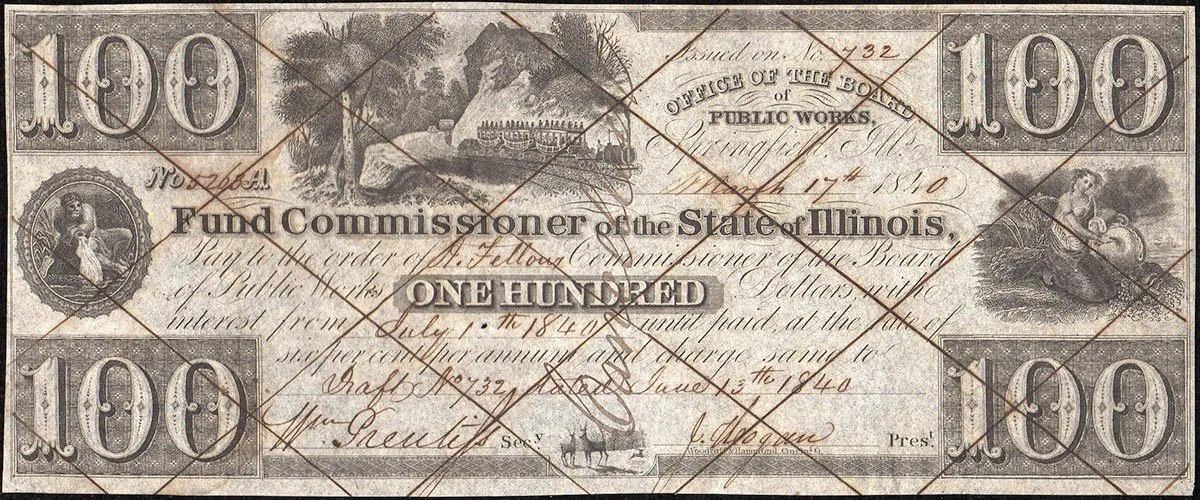 100
100
Issued on No. 732
OFFICE OF THE BOARD
of
PUBLIC WORKS.
Springfield, Ills.
March 17th 1840
No 5263 A
Fund Commissioner of the State of Illinois,
Pay to the order of J. Fellows Commissioner of the Board
of Public Works ONE HUNDRED Dollars, with
interest from July 1th 1840 until paid, at the rate of
six per cent per annum and charge same to
Draft No 732, dated June 13th 1840
Wm Prentiss Secy
J. Hogan Prest.
100
100